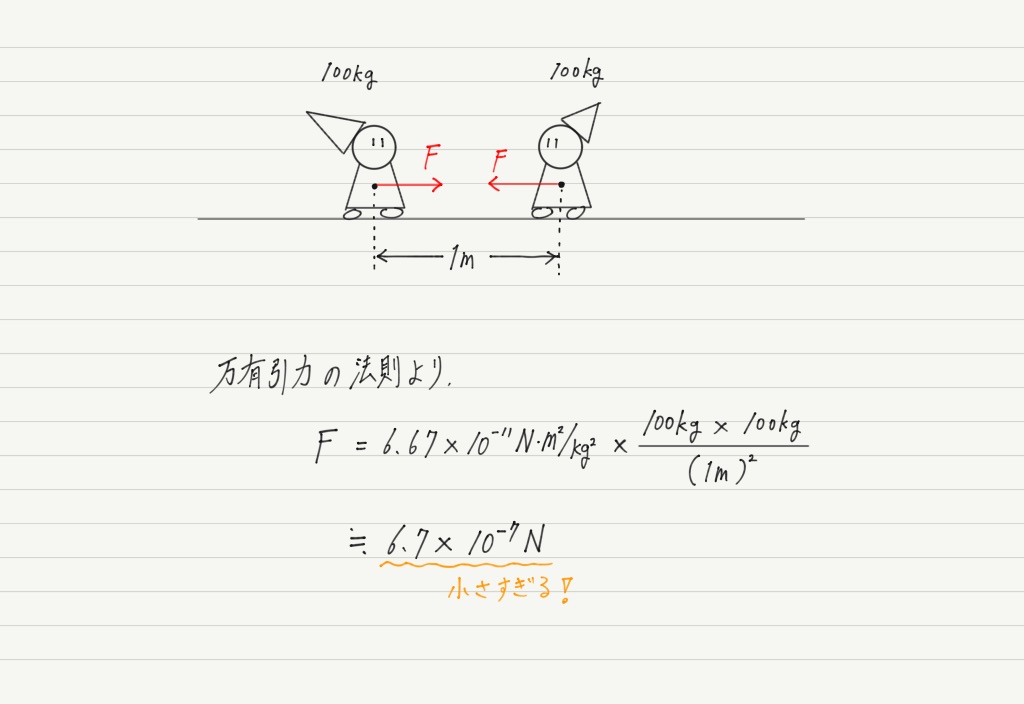 100kg 100kg
F F
1m
万有引力の法則より.
F = 6.67 × 10⁻¹¹ N·m²/kg² × (100kg × 100kg)/(1m)²
≒ 6.7 × 10⁻⁷ N
小さすぎる!